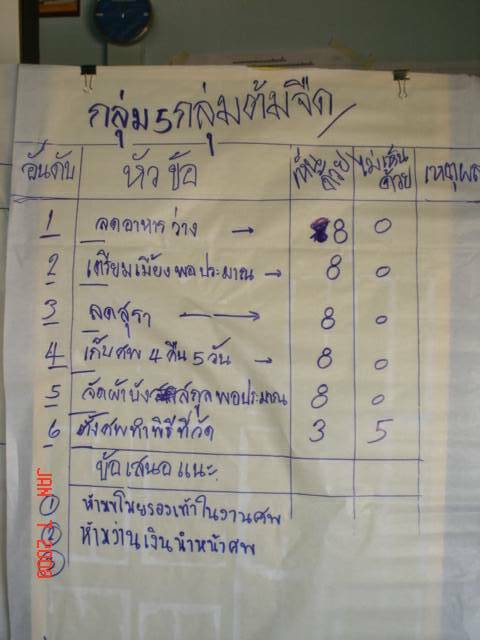 กลุ่ม 5 กลุ่มต้มจืด
อันดับ หัวข้อ เห็นด้วย ไม่เห็นด้วย เหตุผล
1 ลดอาหารว่าง → 8 0
2 เตรียมเมี้ยงพอประมาณ → 8 0
3 ลดสุรา → 8 0
4 เก็บศพ 4 คืน 5 วัน → 8 0
5 จัดผ้าบังสกุลพอประมาณ 8 0
6 ตั้งศพทำพิธีที่วัด 3 5
ข้อเสนอแนะ
1 ห้ามขโมยรองเท้าในงานศพ
2 ห้ามว่านเงินนำหน้าศพ
3
JAN 1 2003